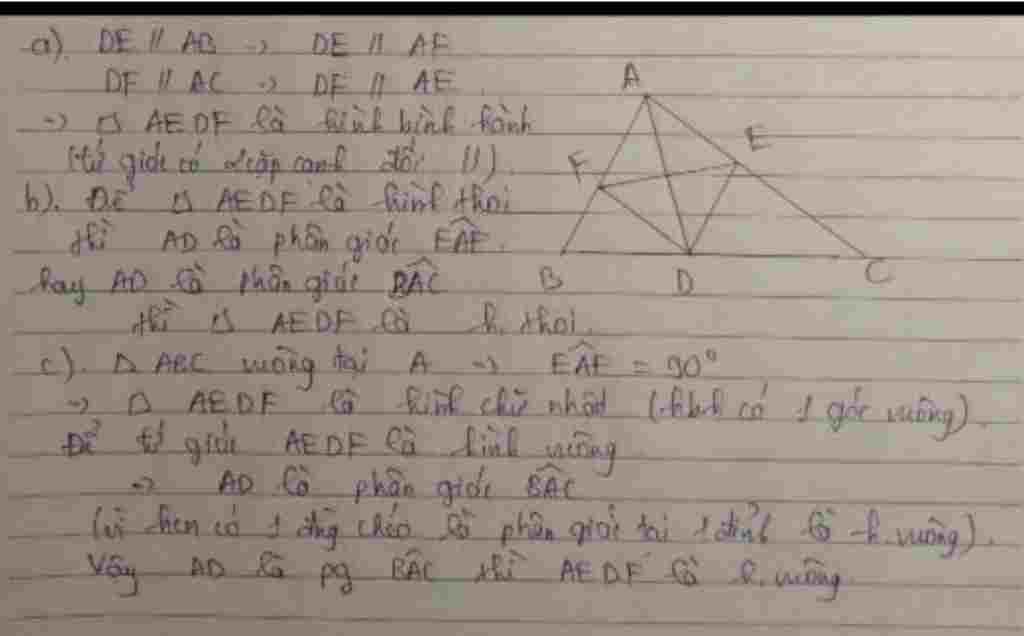 a). DE // AB -> DE // AF
DF // AC -> DF // AE
-> □ AEDF là hình bình hành
(tứ giác có 2 cặp cạnh đối //).
b). Để □ AEDF là hình thoi
thì AD là phân giác EAF.
hay AD là phân giác BAC
thì □ AEDF là h. thoi.
c). Δ ABC vuông tại A -> EAF = 90°
-> □ AEDF là hình chữ nhật (hbh có 1 góc vuông).
Để tứ giác AEDF là hình vuông
-> AD là phân giác BAC
(vì hcn có 1 đg chéo là phân giác tại 1 đỉnh là h. vuông).
Vậy AD là pg BAC thì AEDF là h. vuông
A
E
F
B
D
C